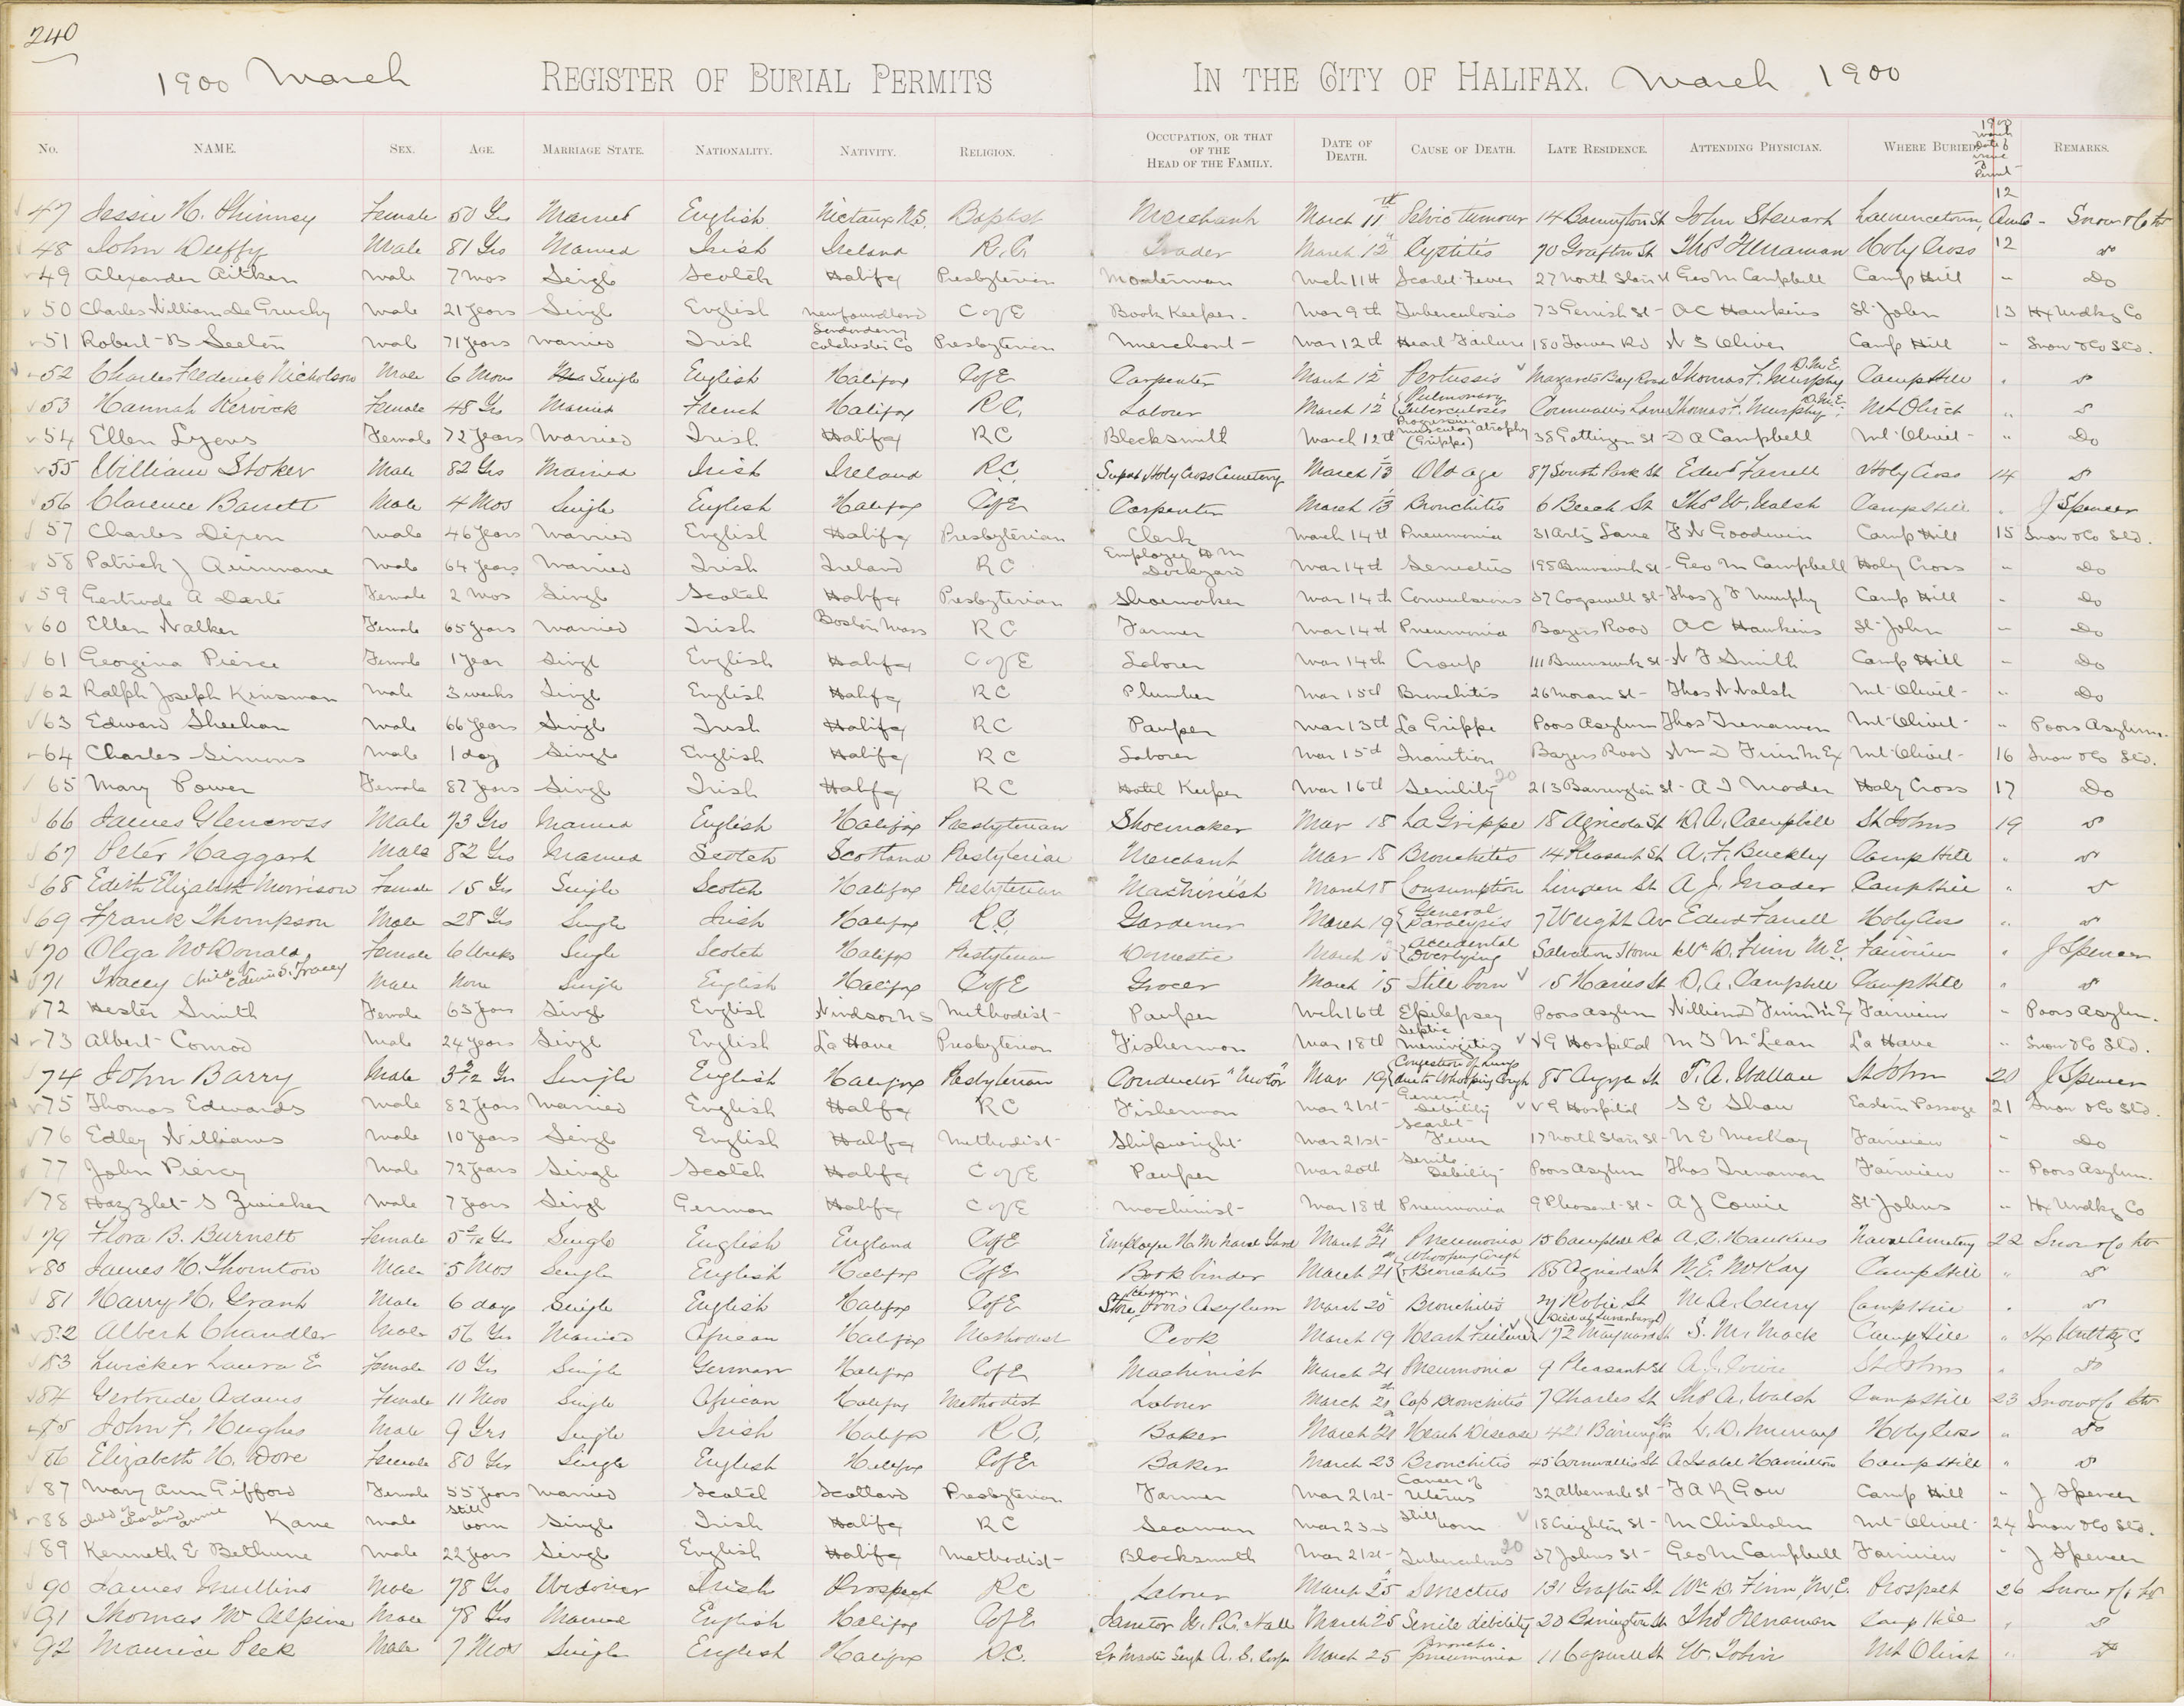 240
1900 March REGISTER OF BURIAL PERMITS IN THE CITY OF HALIFAX. March 1900
No. NAME. SEX. AGE. MARRIAGE STATE. NATIONALITY. NATIVITY. RELIGION. OCCUPATION, OR THAT OF THE HEAD OF THE FAMILY. DATE OF DEATH. CAUSE OF DEATH. LATE RESIDENCE. ATTENDING PHYSICIAN. WHERE BURIED. 1900 March Date of issue of Permit REMARKS.
47 Jessie H. Phinney Female 50 Yrs Married English Nictaux N.S. Baptist Merchant March 11th Pelvic tumour 14 Barrington St John Stewart Lawrencetown, 12 Snow & Co
48 John Duffy Male 81 Yrs Married Irish Ireland R.C. Trader March 12 Cystitis 70 Grafton St Thos Trenaman Holy Cross 12 Do
49 Alexander Aitken Male 7 Mos Single Scotch Halifax Presbyterian Moulderman Mch 11th Scarlet Fever 27 North Starr St Geo M Campbell Camp Hill " Do
50 Charles William De Gruchy Male 21 Years Single English Newfoundland C of E Book Keeper Mar 9th Tuberculosis 73 Gerrish St A C Hawkins St John 13 Hx Undkg Co
51 Robert B Seeton Male 71 Years Married Irish Londonderry Colchester Co Presbyterian Merchant Mar 12th Heart Failure 180 Tower Rd W S Oliver Camp Hill " Snow & Co Ltd.
52 Charles Frederick Nicholson Male 6 Mos Single English Halifax C of E Carpenter March 12 Pertussis Margarets Bay Road Thomas F. Murphy D.M.E. Camp Hill " Do
53 Hannah Kervick Female 48 Yrs Married French Halifax R.C. Labourer March 12 Pulmonary Tuberculosis Cornwallis Lane Thomas F. Murphy D.M.E. Mt Olivet " Do
54 Ellen Lyons Female 72 Years Married Irish Halifax RC Blacksmith March 12th Progressive muscular atrophy (Grippe) 38 Gottingen St D A Campbell Mt Olivet " Do
55 William Stoker Male 82 Yrs Married Irish Ireland R.C. Supt Holy Cross Cemetery March 13 Old age 87 South Park St Edwd Farrell Holy Cross 14 Do
56 Clarence Barrett Male 4 Mos Single English Halifax C of E Carpenter March 13 Bronchitis 6 Beech St Thos W. Walsh Camp Hill " J Spencer
57 Charles Dixon Male 46 Years Married English Halifax Presbyterian Clerk March 14th Pneumonia 31 Artz Lane F W Goodwin Camp Hill 15 Snow & Co Ltd.
58 Patrick J Quinnane Male 64 Years Married Irish Ireland RC Employee H M Dockyard Mar 14th Senectus 195 Brunswick St Geo M Campbell Holy Cross " Do
59 Gertrude A Female 2 Mos Single Scotch Halifax Presbyterian Shoemaker Mar 14th Convulsions 37 Cogswell St Thos J F Murphy Camp Hill " Do
60 Ellen Walker Female 65 Years Married Irish Boston Mass RC Farmer Mar 14th Pneumonia Bayers Road A C Hawkins St John " Do
61 Georgina Pierce Female 1 Year Single English Halifax C of E Laborer Mar 14th Croup 111 Brunswick St W F Smith Camp Hill " Do
62 Ralph Joseph Kinsman Male 3 weeks Single English Halifax RC Plumber Mar 15th Bronchitis 26 Moran St Thos W Walsh Mt Olivet " Do
63 Edward Sheehan Male 66 Years Single Irish Halifax RC Pauper Mar 13th La Grippe Poors Asylum Thos Trenaman Mt Olivet " Poors Asylum
64 Charles Simons Male 1 day Single English Halifax RC Laborer Mar 15th Inanition Bayers Road Wm D Finn M Ex Mt Olivet 16 Snow & Co Ltd.
65 Mary Power Female 87 Years Single Irish Halifax RC Hotel Keeper Mar 16th Senility 20 213 Barrington St A I Mader Holy Cross 17 Do
66 James Glencross Male 73 Yrs Married English Halifax Presbyterian Shoemaker Mar 18 La Grippe 18 Agricola St D. A. Campbell St Johns 19 Do
67 Peter Haggart Male 82 Yrs Married Scotch Scotland Presbyterian Merchant Mar 18 Bronchitis 14 Pleasant St A. F. Buckley Camp Hill " Do
68 Edith Elizabeth Morrison Female 15 Yrs Single Scotch Halifax Presbyterian Machinist March 18 Consumption Linden St A J. Mader Camp Hill " Do
69 Frank Thompson Male 28 Yrs Single Irish Halifax R.C. Gardener March 19 General Paralysis 7 Wright Av Edwd Farrell Holy Cross " Do
70 Olga McDonald Female 6 Weeks Single Scotch Halifax Presbyterian Domestic March 15 Accidental Overlying Salvation Home Wm D. Finn M.E. Fairview " J Spencer
71 Tracey Child of Edwin S. Tracey Male None Single English Halifax C of E Grocer March 15 Still born 15 Harris St D. A. Campbell Camp Hill " Do
72 Hester Smith Female 63 Years Single English Windsor NS Methodist Pauper Mch 16th Epilepsy Poors Asylum William D Finn M Ex Fairview " Poors Asylum.
73 Albert Conrod Male 24 Years Single English La Have Presbyterian Fisherman Mar 18th Septic Meningitis V G Hospital M I McLean La Have " Snow & Co Ltd.
74 John Barry Male 3 2/12 Yrs Single English Halifax Presbyterian Conductor "Motor" Mar 19 Congestion of Lungs Whooping Cough 85 Argyle St T. A. Wallace St John 20 J Spencer
75 Thomas Edwards Male 82 Years Married English Halifax RC Fisherman Mar 21st General Debility V G Hospital S E Shaw Eastern Passage 21 Snow & Co Ltd.
76 Edley Williams Male 10 Years Single English Halifax Methodist Shipwright Mar 21st Scarlet Fever 17 North Starr St N E MacKay Fairview " Do
77 John Piercy Male 72 Years Single Scotch Halifax C of E Pauper Mar 20th Senile Debility Poors Asylum Thos Trenaman Fairview " Poors Asylum.
78 Hazzlet S Zwicker Male 7 Years Single German Halifax C of E Machinist Mar 18th Pneumonia 9 Pleasant St A J Cowie St Johns " Hx Undkg Co
79 Flora B. Burnett Female 5 Yrs Single English England C of E Employee H. M Naval Yard March 21st Pneumonia 15 Campbell Rd A. C. Hawkins Naval Cemetery 22 Snow & Co
80 James H. Thornton Male 5 Mos Single English Halifax C of E Bookbinder March 21st Whooping Cough Bronchitis 185 Agricola St N. E. McKay Camp Hill " Do
81 Harry H. Grant Male 6 days Single English Halifax C of E Store Poors Asylum March 20 Bronchitis 27 Robie St M. A. Curry Camp Hill " Do
82 Albert Chandler Male 56 Yrs Married African Halifax Methodist Cook March 19 Heart Failure (Died at Lunenburg) 172 Maynard St S. M. Mack Camp Hill " Hx Undtkg C
83 Zwicker Laura E Female 10 Yrs Single German Halifax C of E Machinist March 21 Pneumonia 9 Pleasant St A. J. Cowie St Johns " Do
84 Gertrude Adams Female 11 Mos Single African Halifax Methodist Labourer March 21st Cap Bronchitis 7 Charles St Thos A. Walsh Camp Hill 23 Snow & Co
85 John F. Hughes Male 9 Yrs Single Irish Halifax R.C. Baker March 21 Heart Disease 421 Barrington St L. D. Murray Holy Cross " Do
86 Elizabeth H. Dore Female 80 Yrs Single English Halifax C of E Baker March 23 Bronchitis 45 Cornwallis St A Isabel Hamilton Camp Hill " Do
87 Mary Ann Gifford Female 55 Years Married Scotch Scotland Presbyterian Farmer Mar 21st Cancer of Uterus 32 Albemarle St F A R Gow Camp Hill " J Spencer
88 Child of Charles and Annie Kane Male Still born Single Irish Halifax RC Seaman Mar 23rd Still born 18 Creighton St M Chisholm Mt Olivet 24 Snow & Co Ltd.
89 Kenneth E Bethune Male 22 Years Single English Halifax Methodist Blacksmith Mar 21st Tuberculosis 20 37 Johns St Geo M Campbell Fairview " J Spencer
90 James Mullins Male 78 Yrs Widower Irish Prospect RC Labourer March 25 Senectus 131 Grafton St Wm D. Finn, M.E. Prospect 26 Snow & Co
91 Thomas McAlpine Male 78 Yrs Married English Halifax C of E Janitor Hall March 25 Senile debility 20 Barrington St Thos Trenaman Camp Hill " Do
92 Maurice Peek Male 7 Mos Single English Halifax R.C. March 25 Broncho pneumonia 11 Cogswell St W. Tobin Mt Olivet " Do